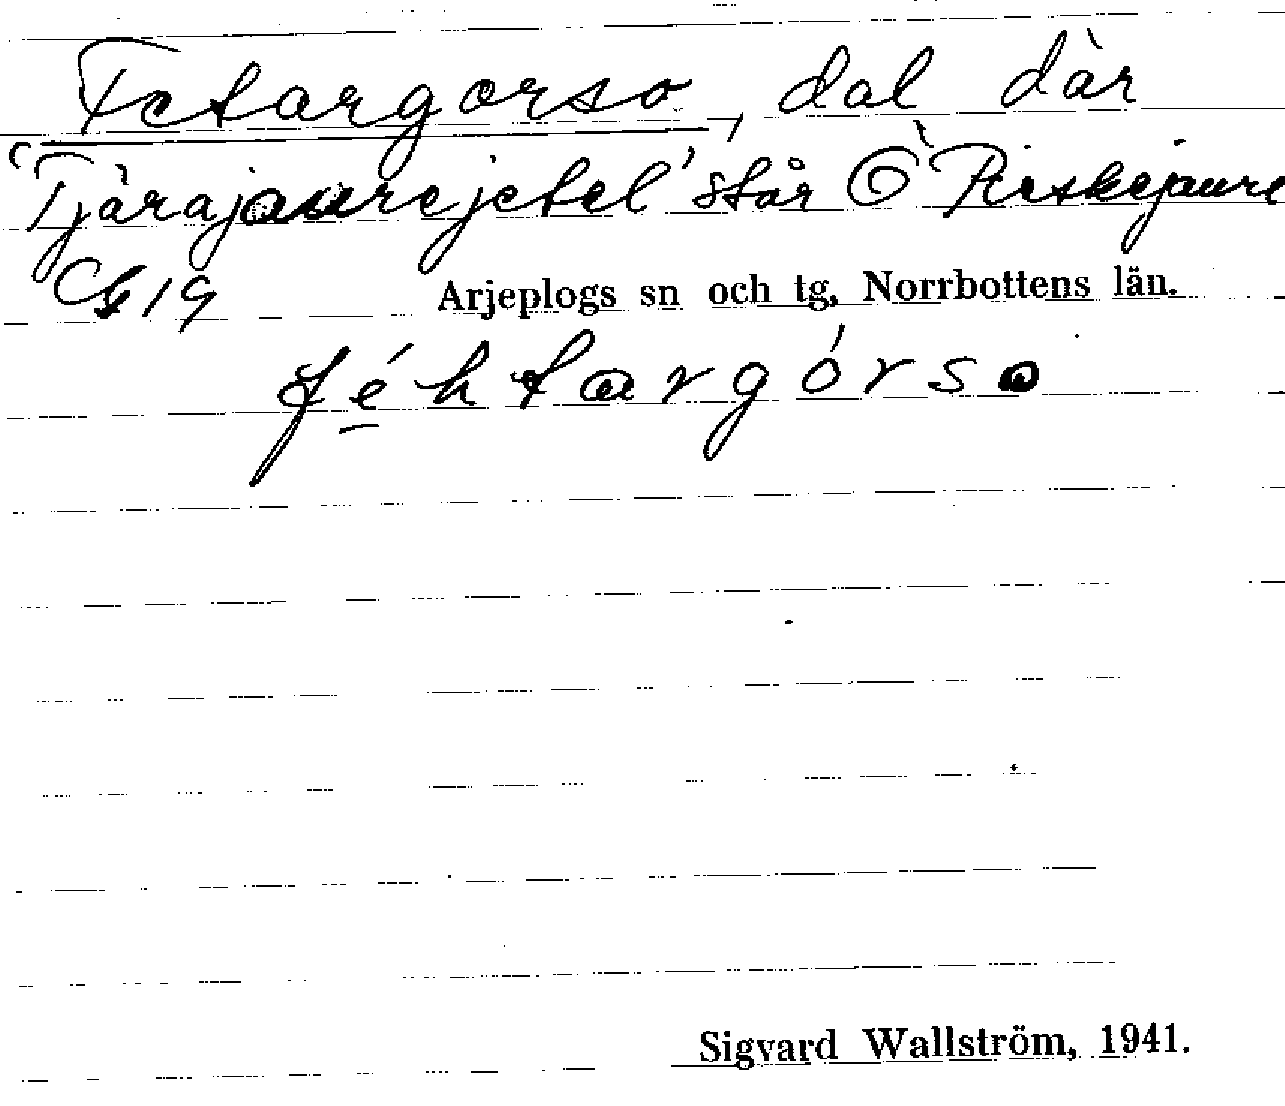 Fetargorso, dal där
'Tjärajaurejetel' står Ö Pieskejaure
G 19 Arjeplogs sn och tg, Norrbottens län.
féhtargórso
Sigvard Wallström, 1941.